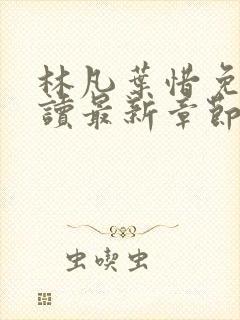 林凡葉惜免
讀最新章節
虫喫虫